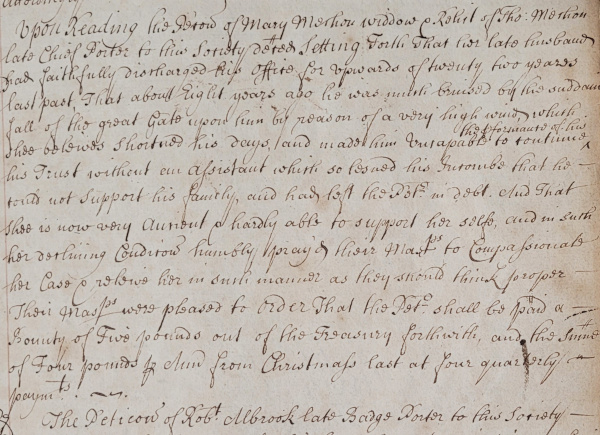 Upon Reading the Peticon of Mary Methon widdow & Relict of Tho: Methon
late Chief Porter to this Society dec̃ed Setting Forth That her late husband
had faithfully discharged this Office for upwards of twenty two yeares
last past, That about Eight years ago he was much bruised by the suddain
fall of the great Gate upon him by reason of a very high wind, which
shee beleives shortned his days, and made him Uncapable to continue
the performance of his
his Trust without an assistant which so lessned his Income that he
could not support his family, and had left the Pet.r in debt. And That
shee is now very Ancient & hardly able to support her selfe, and in such
her declining Condicon humbly pray'd their Mas.ps to Compassionate
her Case & releive her in such manner as they should think proper
Their Mas.ps were pleased to Order That the Pet.r shall be paid a
Bounty of Five pounds out of the Treasury forthwith, and the Sume
of Four pounds p Ann from Christmass last at four quarterly
paym.ts
The Peticon of Rob.t Albrook late Badge Porter to this Society